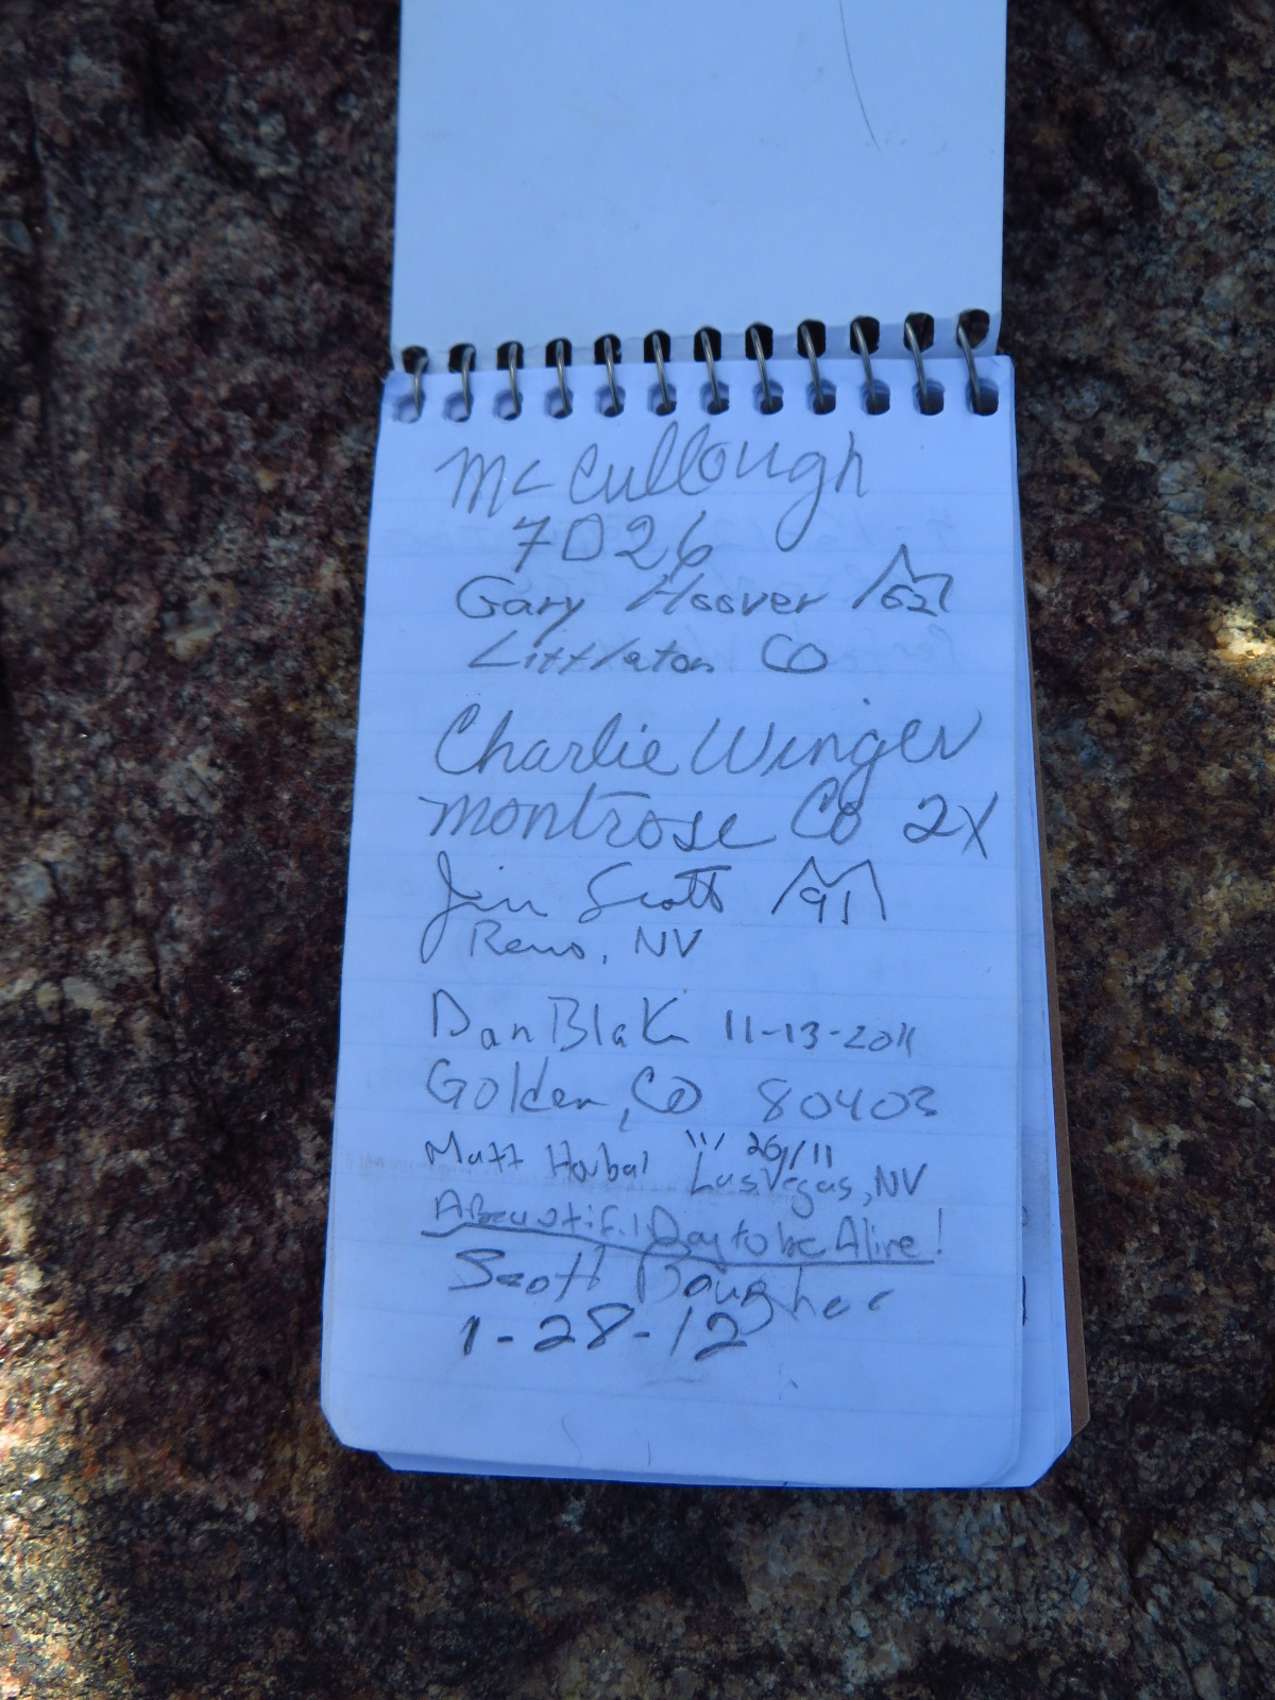 McCullough
7D26
Gary Hoover 62
Littleton CO
Charlie Winger
Montrose Co 2X
Jim Scott 91
Reno, NV
Dan Blake 11-13-2011
Golden, CO 80403
Matt Hovbal 11/26/11
Las Vegas, NV
A Beautiful Day to be Alive!
Scott
1-28-12